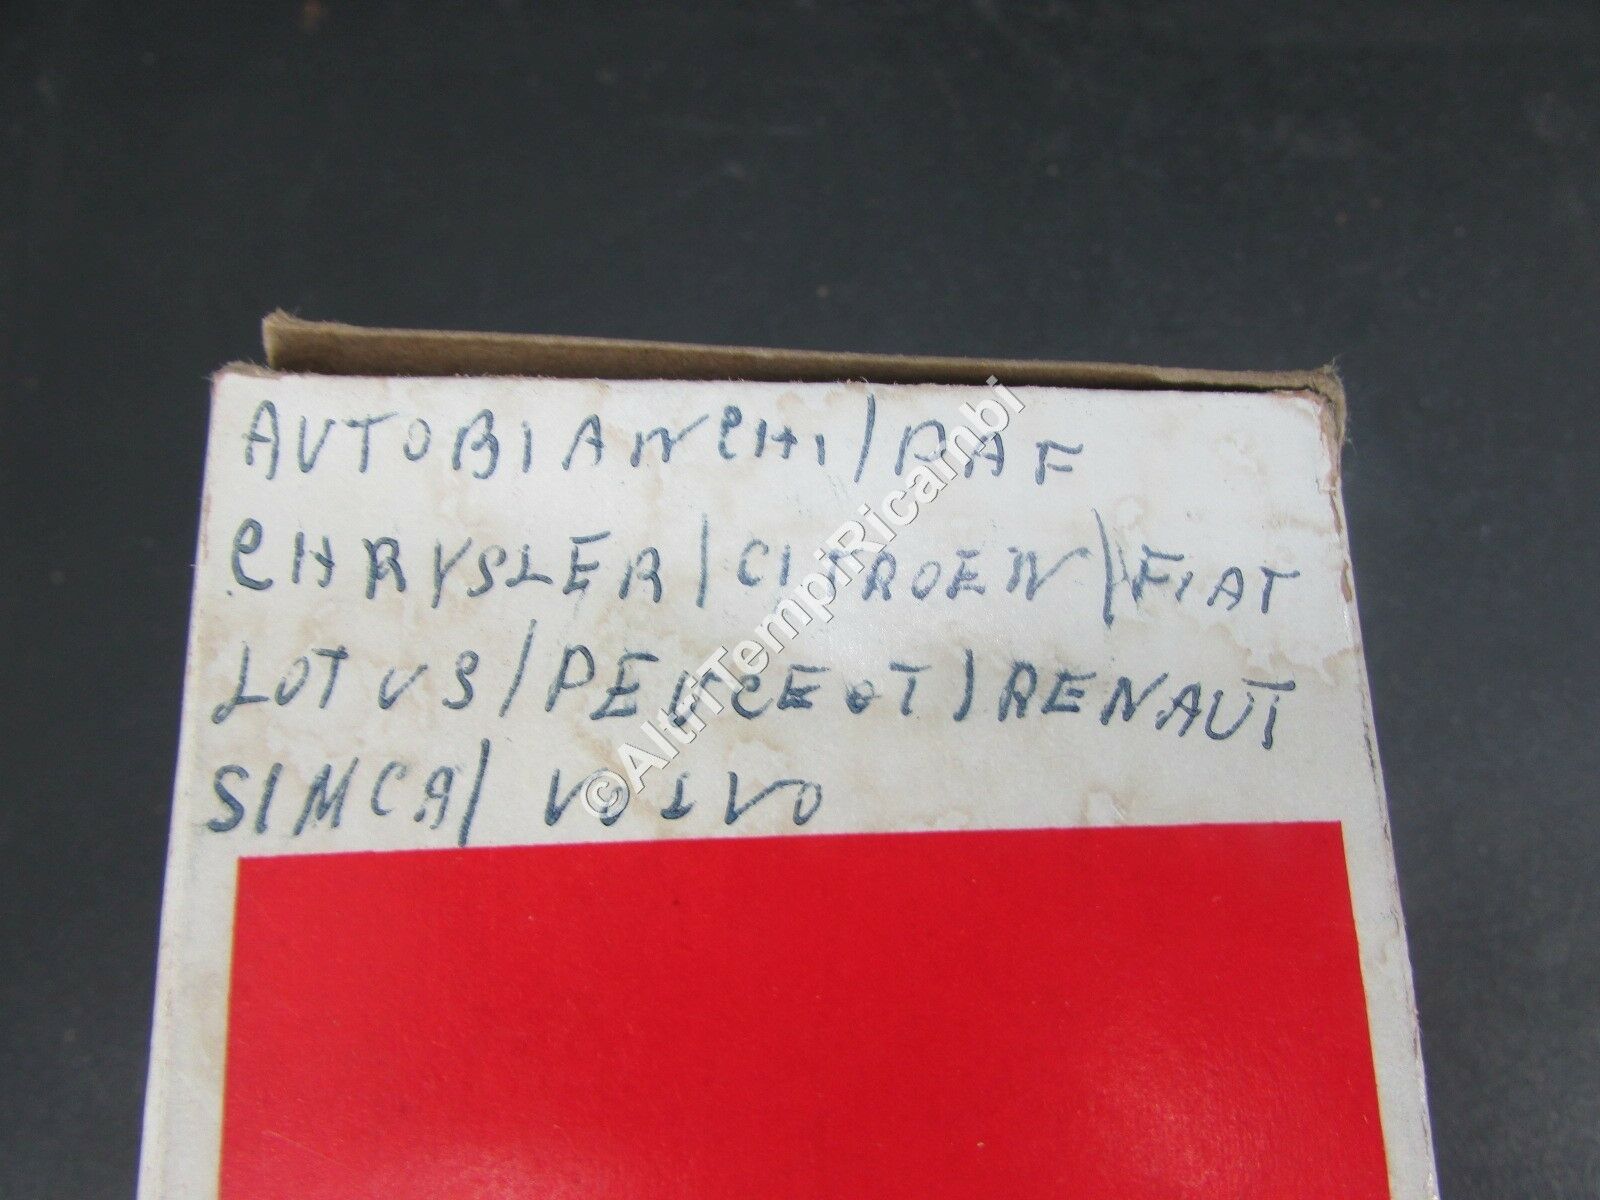 AUTOBIANCHI/DAF
CHRYSLER/CITROEN/FIAT
LOTUS/PEUGEOT/RENAUT
SIMCA/VOLVO
©AltriTempiRicambi